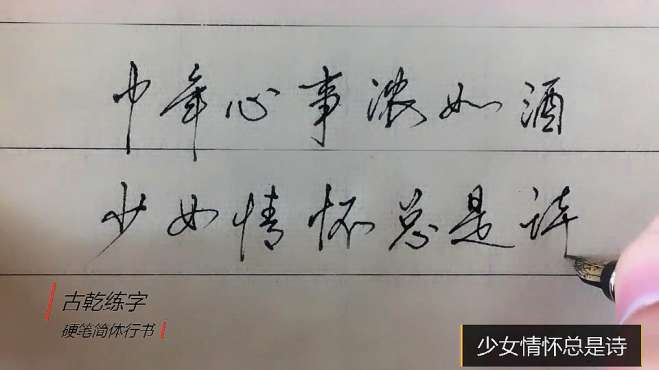 中年心事浓如酒
少女情怀总是诗
古乾练字
硬笔简体行书
少女情怀总是诗